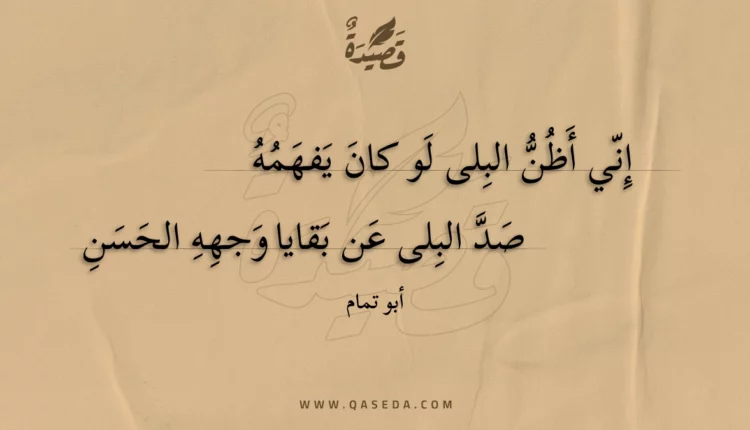 قَصِيدَةٌ
إِنّي أَظُنُّ البِلى لَو كانَ يَفهَمُهُ
صَدَّ البِلى عَن بَقايا وَجهِهِ الحَسَنِ
أبو تمام
WWW.QASEDA.COM